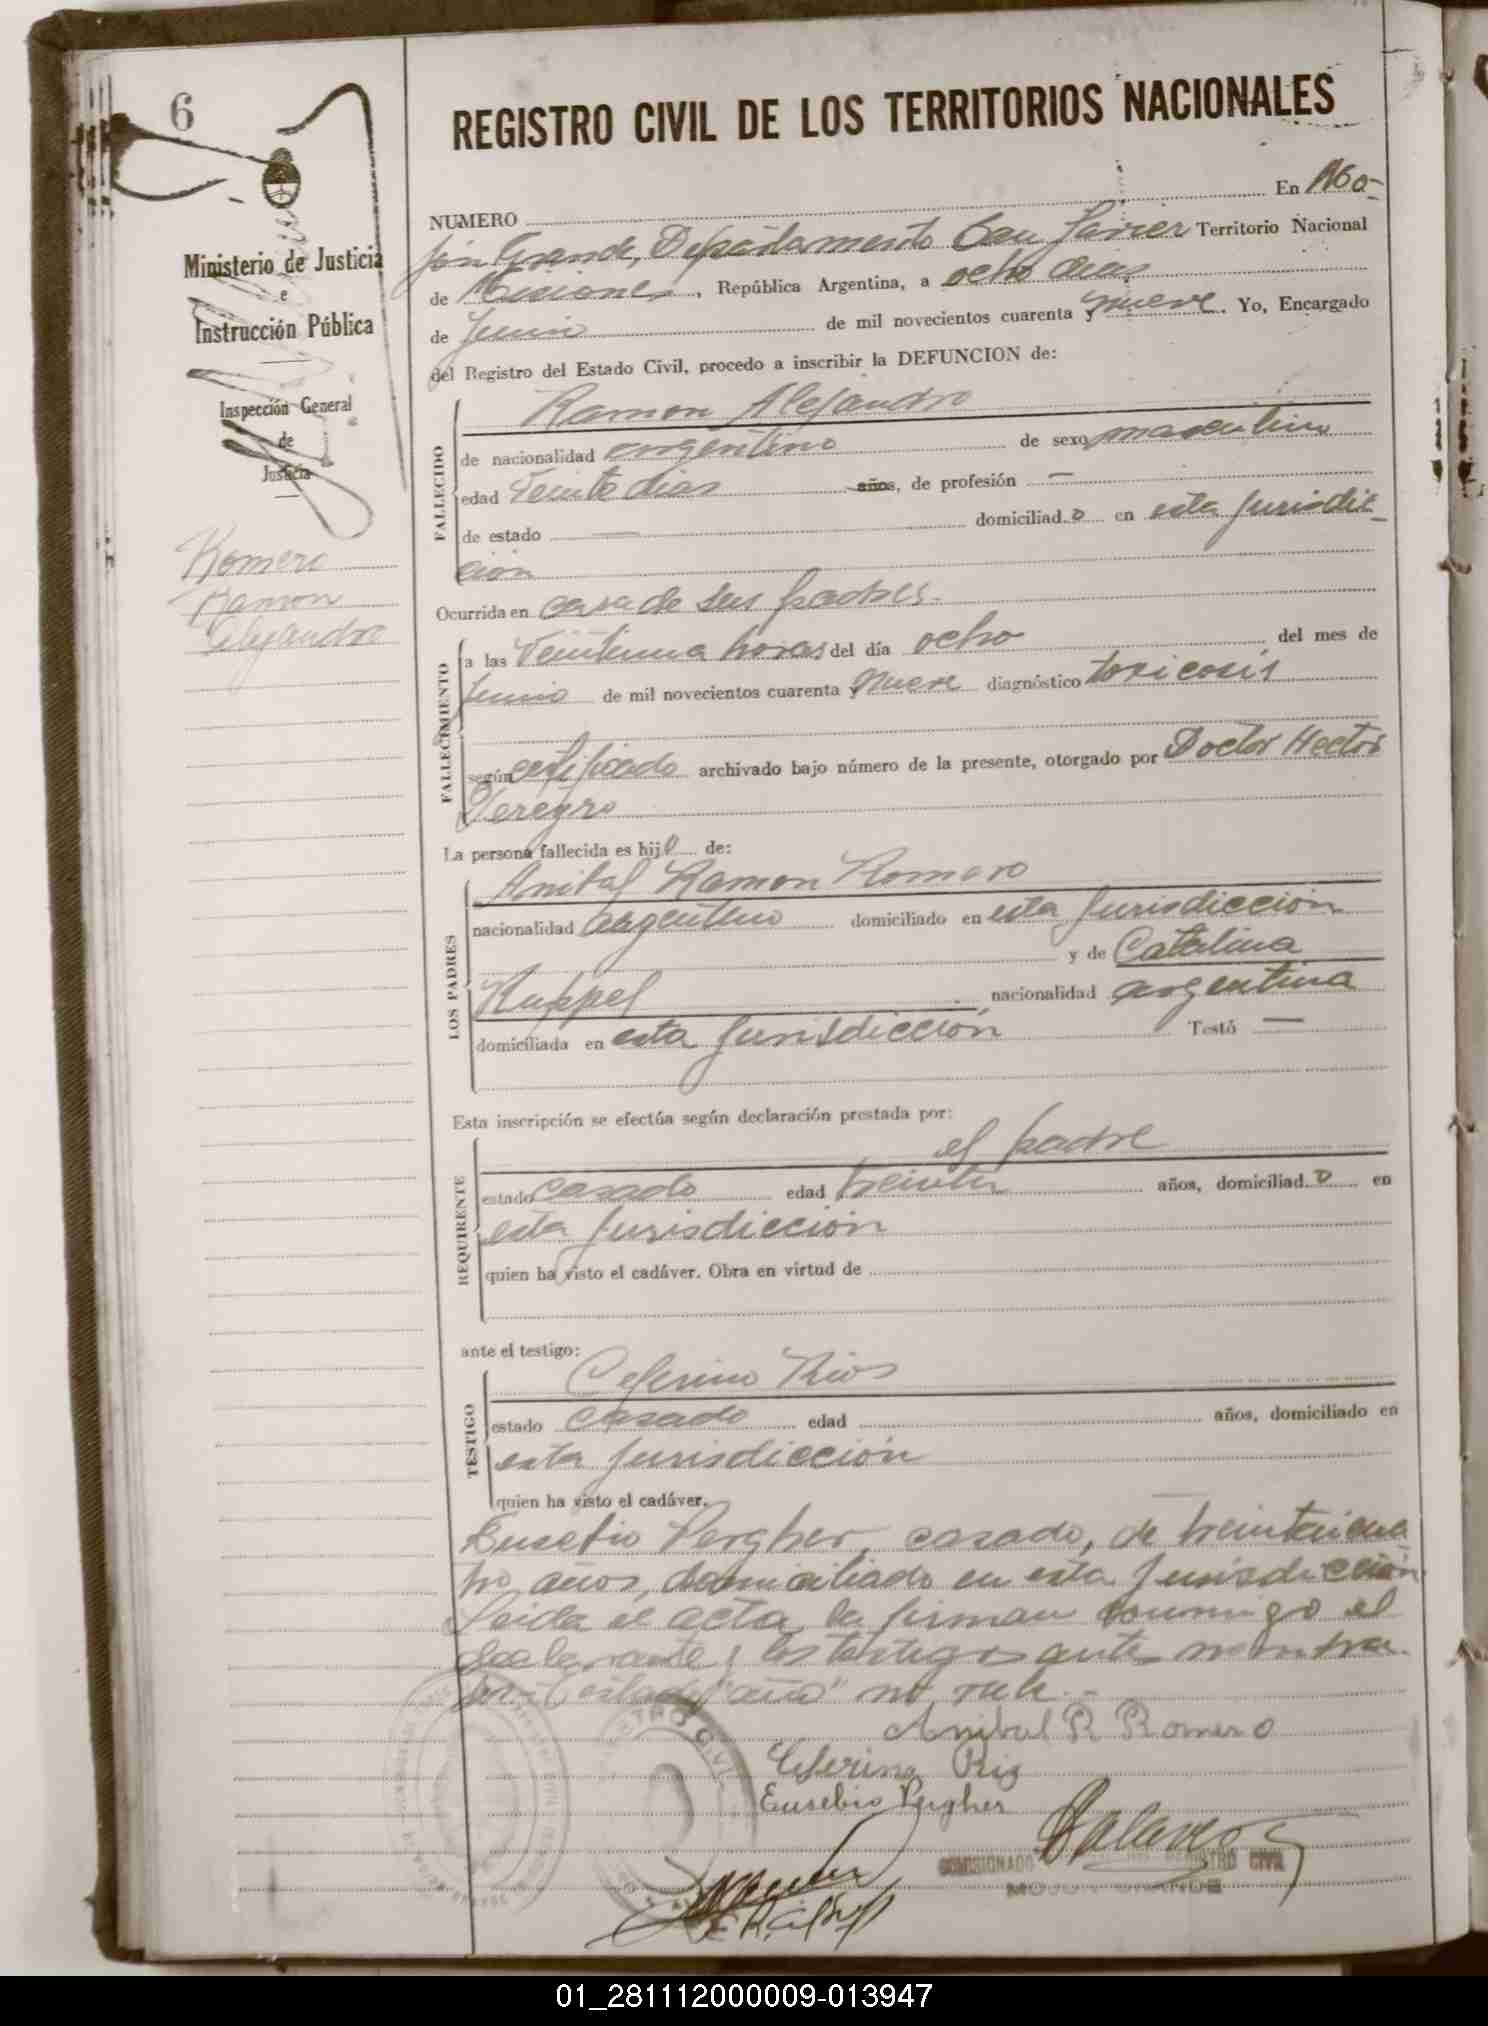 6
REGISTRO CIVIL DE LOS TERRITORIOS NACIONALES
Ministerio de Justicia
e
Instrucción Pública
Inspección General
de
Justicia
Romero
Ramon
Alejandro
NUMERO En Mo-
jón Grande, Departamento San Javier Territorio Nacional
de Misiones, República Argentina, a ocho dias
de Junio de mil novecientos cuarenta y nueve. Yo, Encargado
del Registro del Estado Civil, procedo a inscribir la DEFUNCION de:
FALLECIDO
Ramon Alejandro
de nacionalidad argentino de sexo masculino
edad Veinte dias años, de profesión —
de estado — domiciliado en esta Jurisdic-
ción
Ocurrida en casa de sus padres.
FALLECIMIENTO
a las Veintiuna horas del día ocho del mes de
Junio de mil novecientos cuarenta y nueve diagnóstico toxicosis
según certificado archivado bajo número de la presente, otorgado por Doctor Hector
Veregro
La persona fallecida es hijo de:
LOS PADRES
Anibal Ramon Romero
nacionalidad argentino domiciliado en esta Jurisdicción
y de Catalina
Kuppel nacionalidad argentina
domiciliada en esta Jurisdicción Testó —
Esta inscripción se efectúa según declaración prestada por:
REQUIRENTE
el padre
estado casado edad treinta años, domiciliado en
esta Jurisdicción
quien ha visto el cadáver. Obra en virtud de
ante el testigo:
TESTIGO
Ceferino Rios
estado casado edad años, domiciliado en
esta Jurisdicción
quien ha visto el cadáver.
Eusebio Pergher, casado, de treinticua
tro años, domiciliado en esta Jurisdicción
Leida el acta, la firman conmigo el
declarante y los testigos antes nombra-
dos- Testado "año" no vale.-
Anibal R Romero
Ceferino Rios
Eusebio Pergher
COMISIONADO REGISTRO CIVIL
MOJON GRANDE
01_281112000009-013947